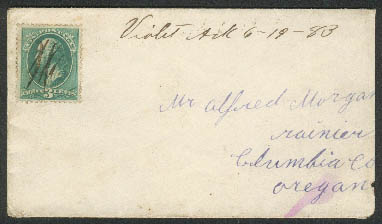 Violet Ark 6-19-83
U.S. POSTAGE
3
Mr Alfred Morgan
rainier
Columbia Co
oregan